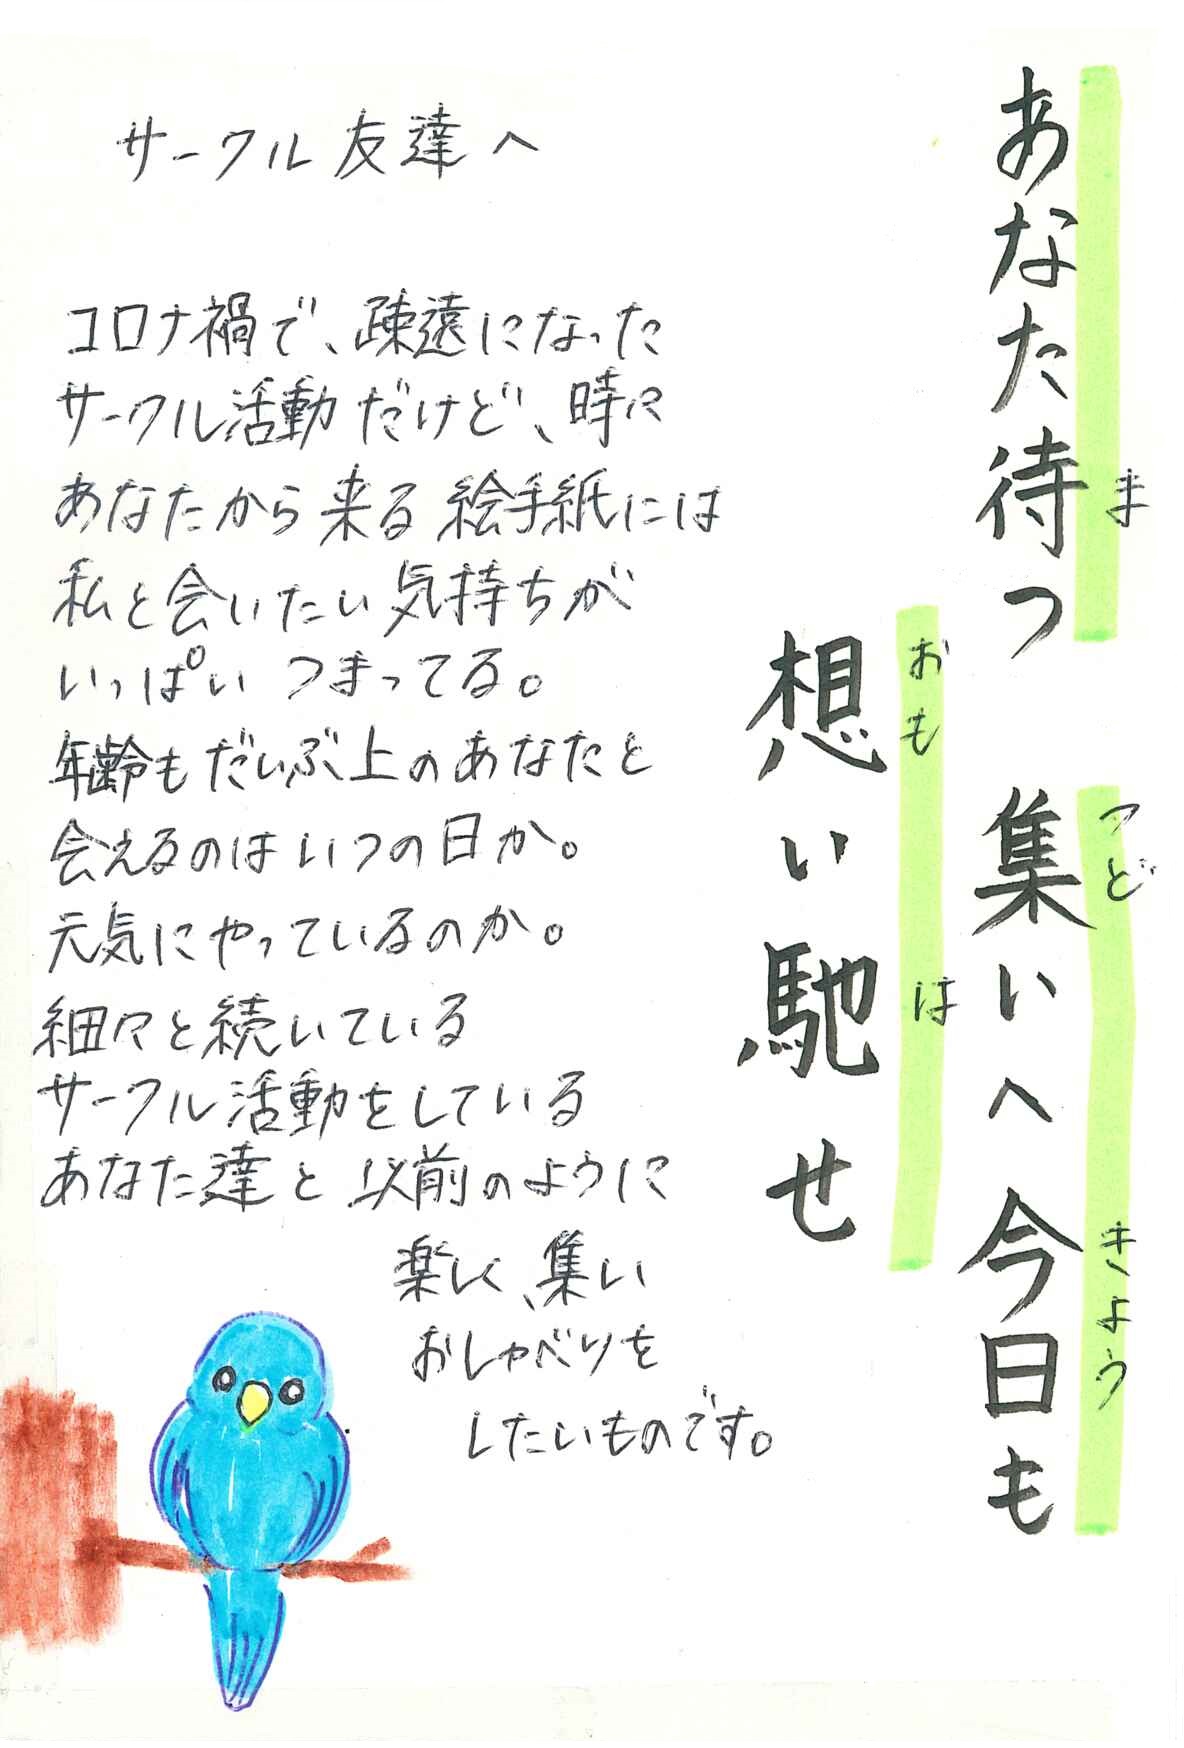 あなた待つ 集いへ今日も
ま
つど
きょう
想い馳せ
おも
は
サークル友達へ
コロナ禍で、疎遠になった
サークル活動だけど、時々
あなたから来る絵手紙には
私と会いたい気持ちが
いっぱいつまってる。
年齢もだいぶ上のあなたと
会えるのはいつの日か。
元気にやっているのか。
細々と続いている
サークル活動をしている
あなた達と以前のように
楽しく、集い
おしゃべりを
したいものです。